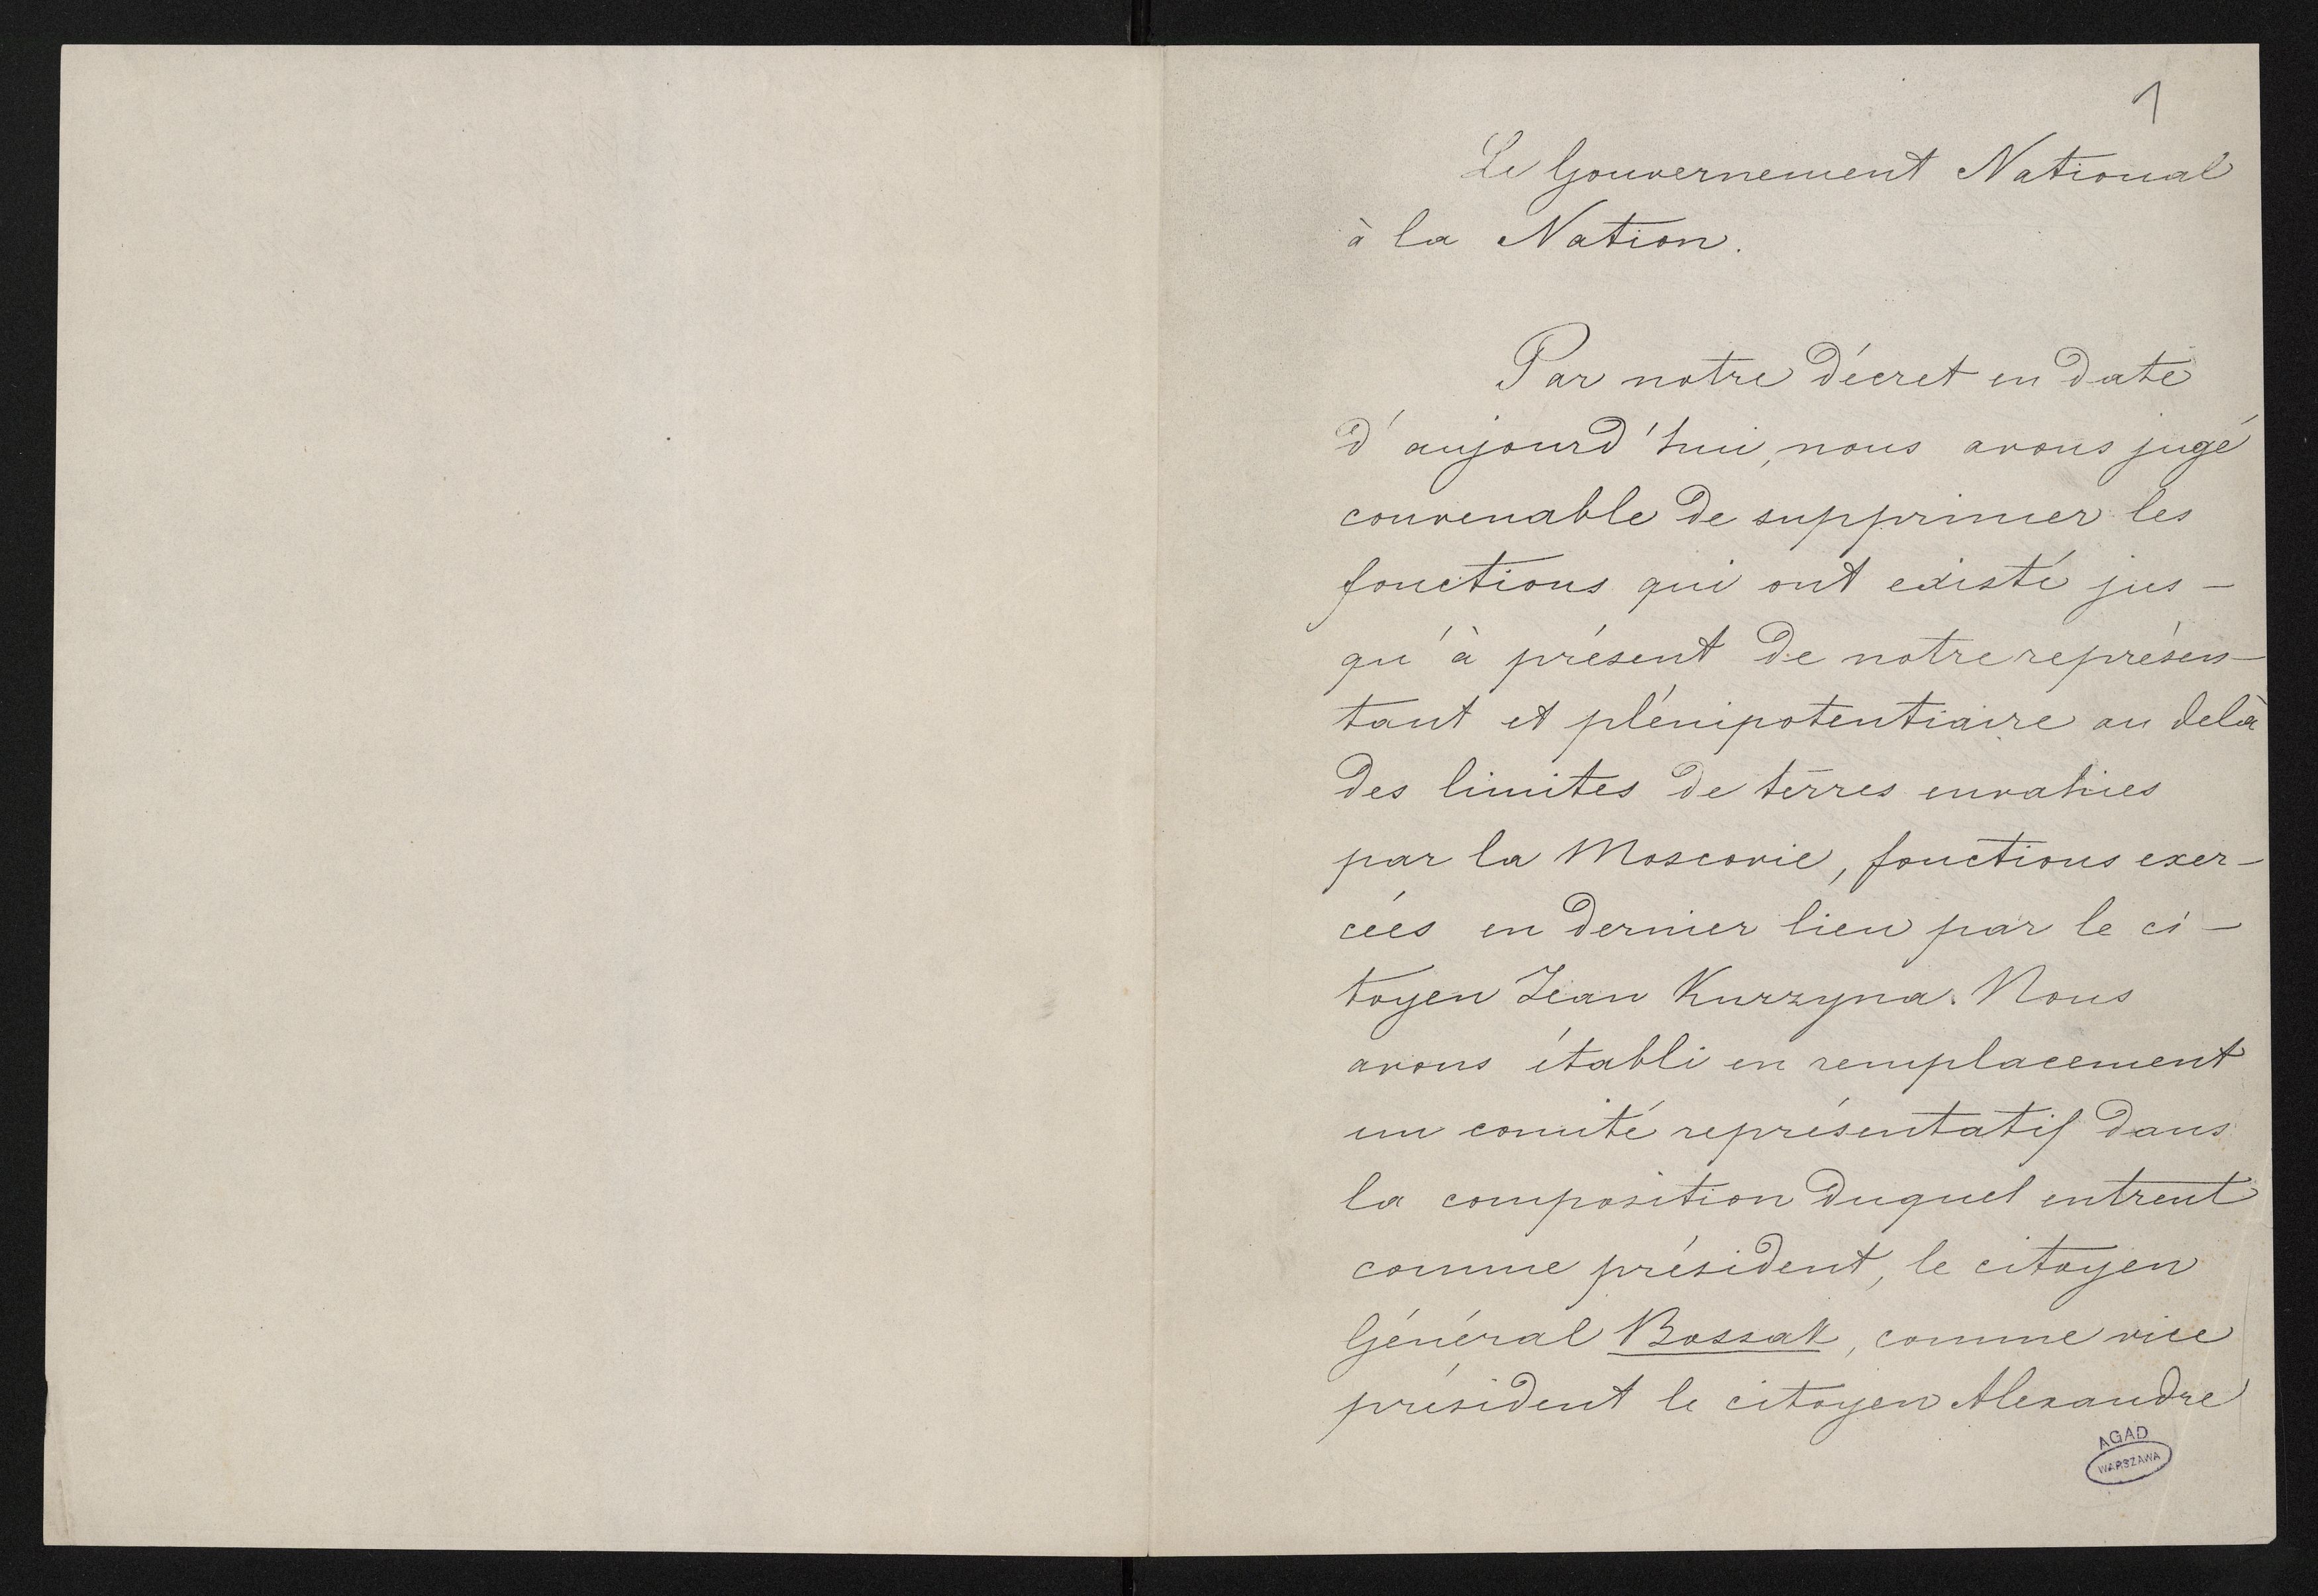 1
Le Gouvernement National
à la Nation.
Par notre décret en date
d'aujourd'hui, nous avons jugé
convenable de supprimer les
fonctions qui ont existé jus-
qu'à présent de notre représen-
tant et plénipotentiaire au delà
des limites de terres envahies
par la Moscovie, fonctions exer-
cées en dernier lieu par le ci-
toyen Jean Kurzyna. Nous
avons établi en remplacement
un comité représentatif dans
la composition duquel entrent
comme président, le citoyen
Général Bossak, comme vice
président le citoyen Alexandre
AGAD
WARSZAWA